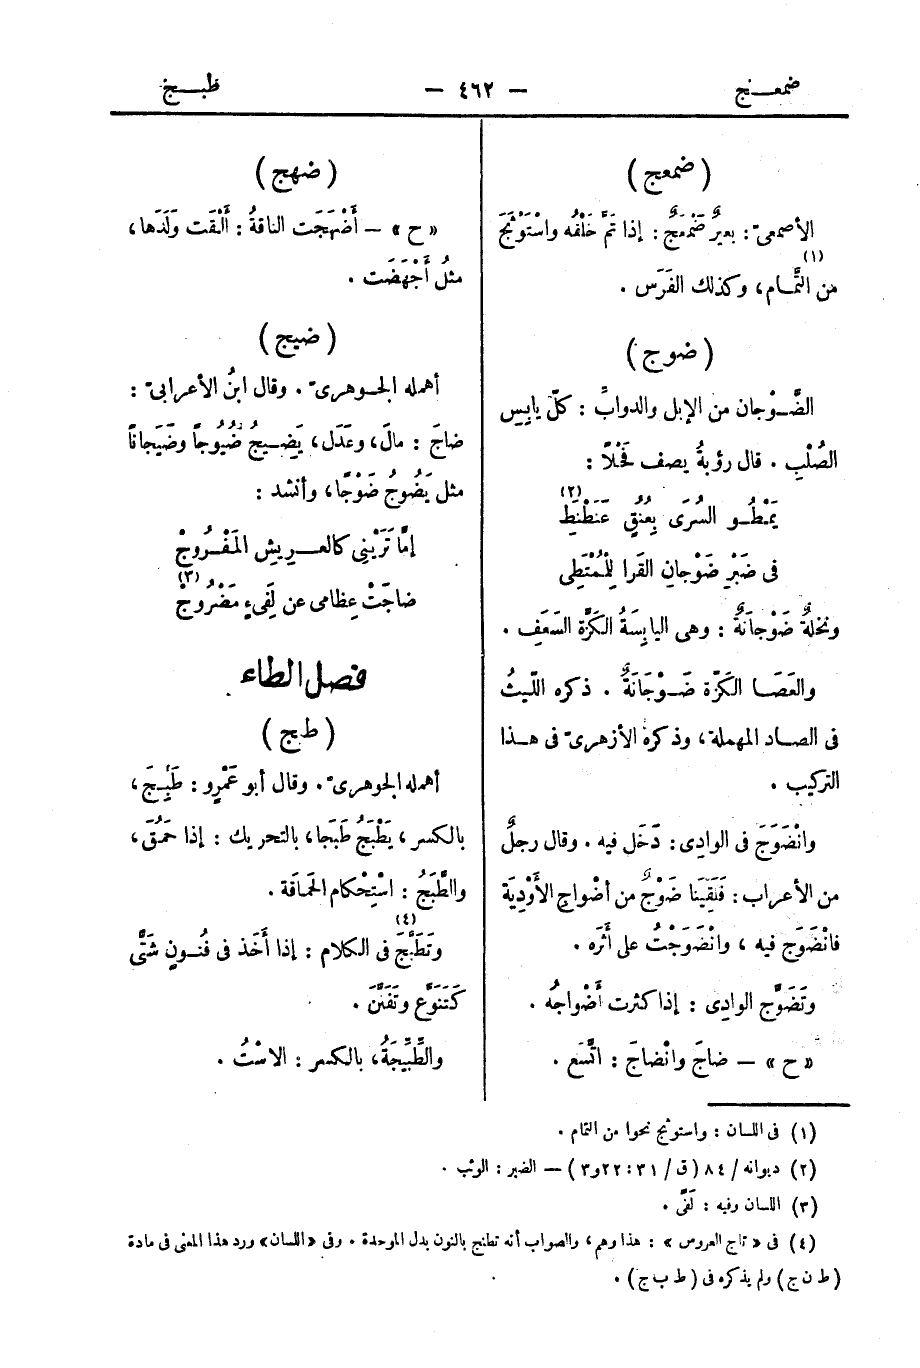 ضمعنج
— ٤٦٢ —
طبخ
(ضمعج)
الأصمعىّ: بعيرٌ ضَمْعَجٌ: إذا تَمَّ خَلْقُه واسْتَوْثَجَ
من التَّمام(١)، وكذلك الفَرَس .
(ضوج)
الضَّوْجان من الإبل والدوابِّ: كلّ يابِسِ
الصُلْبِ . قال رؤبةُ يصف فَحْلًا:
يَمْطُو السُرَى بِعُنُقٍ عَنَطْنَطِ(٢)
فى ضَبْرِ ضَوْجانِ القَرا لِلْمُمْتَطِى
ونخلةٌ ضَوْجانَةٌ: وهى اليابِسَةُ الكَزَّة السَعَفِ .
والعَصَا الكَزّة ضَوْجَانَةٌ . ذكره اللّيثُ
فى الصاد المهملة، وذكره الأزهرىّ فى هذا
التركيب .
وانْضَوَجَ فى الوادِى: دَخَل فيه . وقال رجلٌ
من الأعراب: فَلَقِيَنا ضَوْجٌ من أضْواجِ الأَوْدِيَة
فانْضَوَج فيه، وانْضَوَجْتُ على أَثَره .
وتَضَوَّج الوادِى: إذا كثرت أَضْواجُه .
«ح» — ضاجَ وانْضاجَ: اتَّسَع .
(ضهج)
«ح» — أَضْهَجَت الناقةُ: أَلْقَت وَلَدَها،
مثلُ أَجْهَضَت .
(ضيج)
أهمله الجوهرىّ . وقال ابنُ الأعرابىّ:
ضاجَ: مالَ، وعَدَل، يَضِيجُ ضُيُوجاً وضَيَجاناً
مثل يَضُوجُ ضَوْجًا، وأنشد:
إمّا تَرَيْنِى كالعرِيشِ المَفْرُوجْ
ضاجَتْ عِظامى عن لَفِىءٍ مَضْرُوجْ(٣)
فصل الطاء
(طبج)
أهمله الجوهرىّ . وقال أبو عَمْرٍو: طَبِجَ،
بالكسر، يَطْبَجُ طَبَجا، بالتحريك: إذا حَمُقَ،
والطَّبَجُ: اسْتِحْكام الحَماقة .
وتَطَبَّجَ(٤) فى الكلام: إذا أَخَذ فى فُنونٍ شَتَّى
كتَنَوَّع وتَفَنَّنَ .
والطِّبِّيجَةُ، بالكسر: الاسْتُ .
(١) فى اللسان: واستوثج نحوا من التمام .
(٢) ديوانه/ ٨٤ (ق/ ٣١: ٢٢و٣) — الضبر: الوثب .
(٣) اللسان وفيه: لَفًى .
(٤) فى «تاج العروس»: هذا وهم، والصواب أنه تطنج بالنون بدل الموحدة . وفى «اللسان» ورد هذا المعنى فى مادة
(ط ن ج) ولم يذكره فى (ط ب ج) .